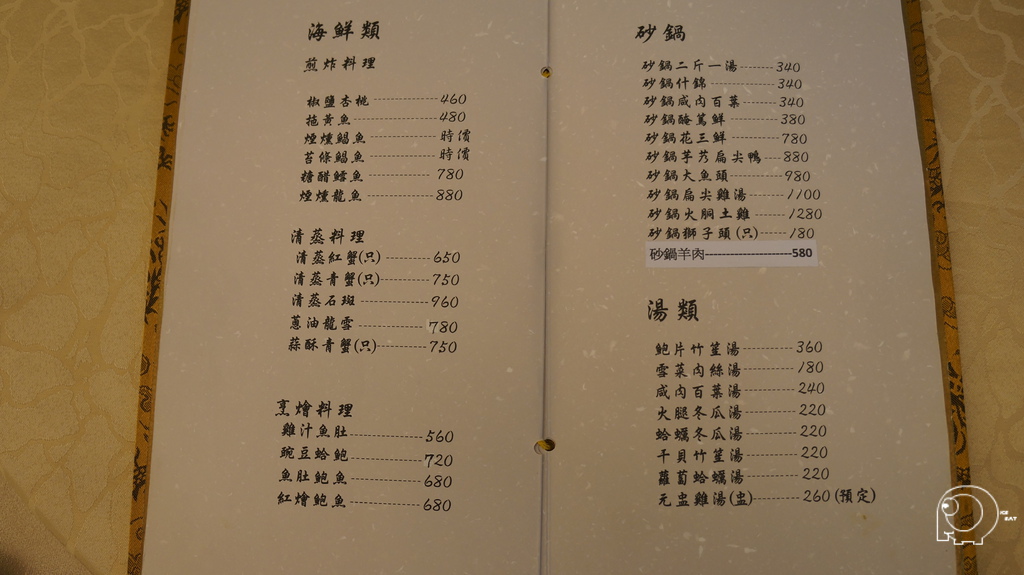 海鮮類
煎炸料理
椒鹽杏桃----------460
拖黃魚-------------480
煙燻鯧魚-----------時價
苔條鯧魚-----------時價
糖醋鱈魚-----------780
煙燻龍魚-----------880
清蒸料理
清蒸紅蟹(只)-------650
清蒸青蟹(只)-------750
清蒸石斑-----------960
蔥油龍雪-----------780
蒜酥青蟹(只)-------750
烹燴料理
雞汁魚肚-----------560
豌豆蛤鮑-----------720
魚肚鮑魚-----------680
紅燴鮑魚-----------680
砂鍋
砂鍋二斤一湯-------340
砂鍋什錦-----------340
砂鍋咸肉百葉-------340
砂鍋醃篤鮮---------380
砂鍋花三鮮---------780
砂鍋芋艿扁尖鴨----880
砂鍋大魚頭---------980
砂鍋扁尖雞湯-------1100
砂鍋火胴土雞-------1280
砂鍋獅子頭(只)-----180
砂鍋羊肉----------------------580
湯類
鮑片竹笙湯---------360
雪菜肉絲湯---------180
咸肉百葉湯---------240
火腿冬瓜湯---------220
蛤蠣冬瓜湯---------220
干貝竹笙湯---------220
蘿蔔蛤蠣湯---------220
元盅雞湯(盅)--------260(預定)
ICE
BAT